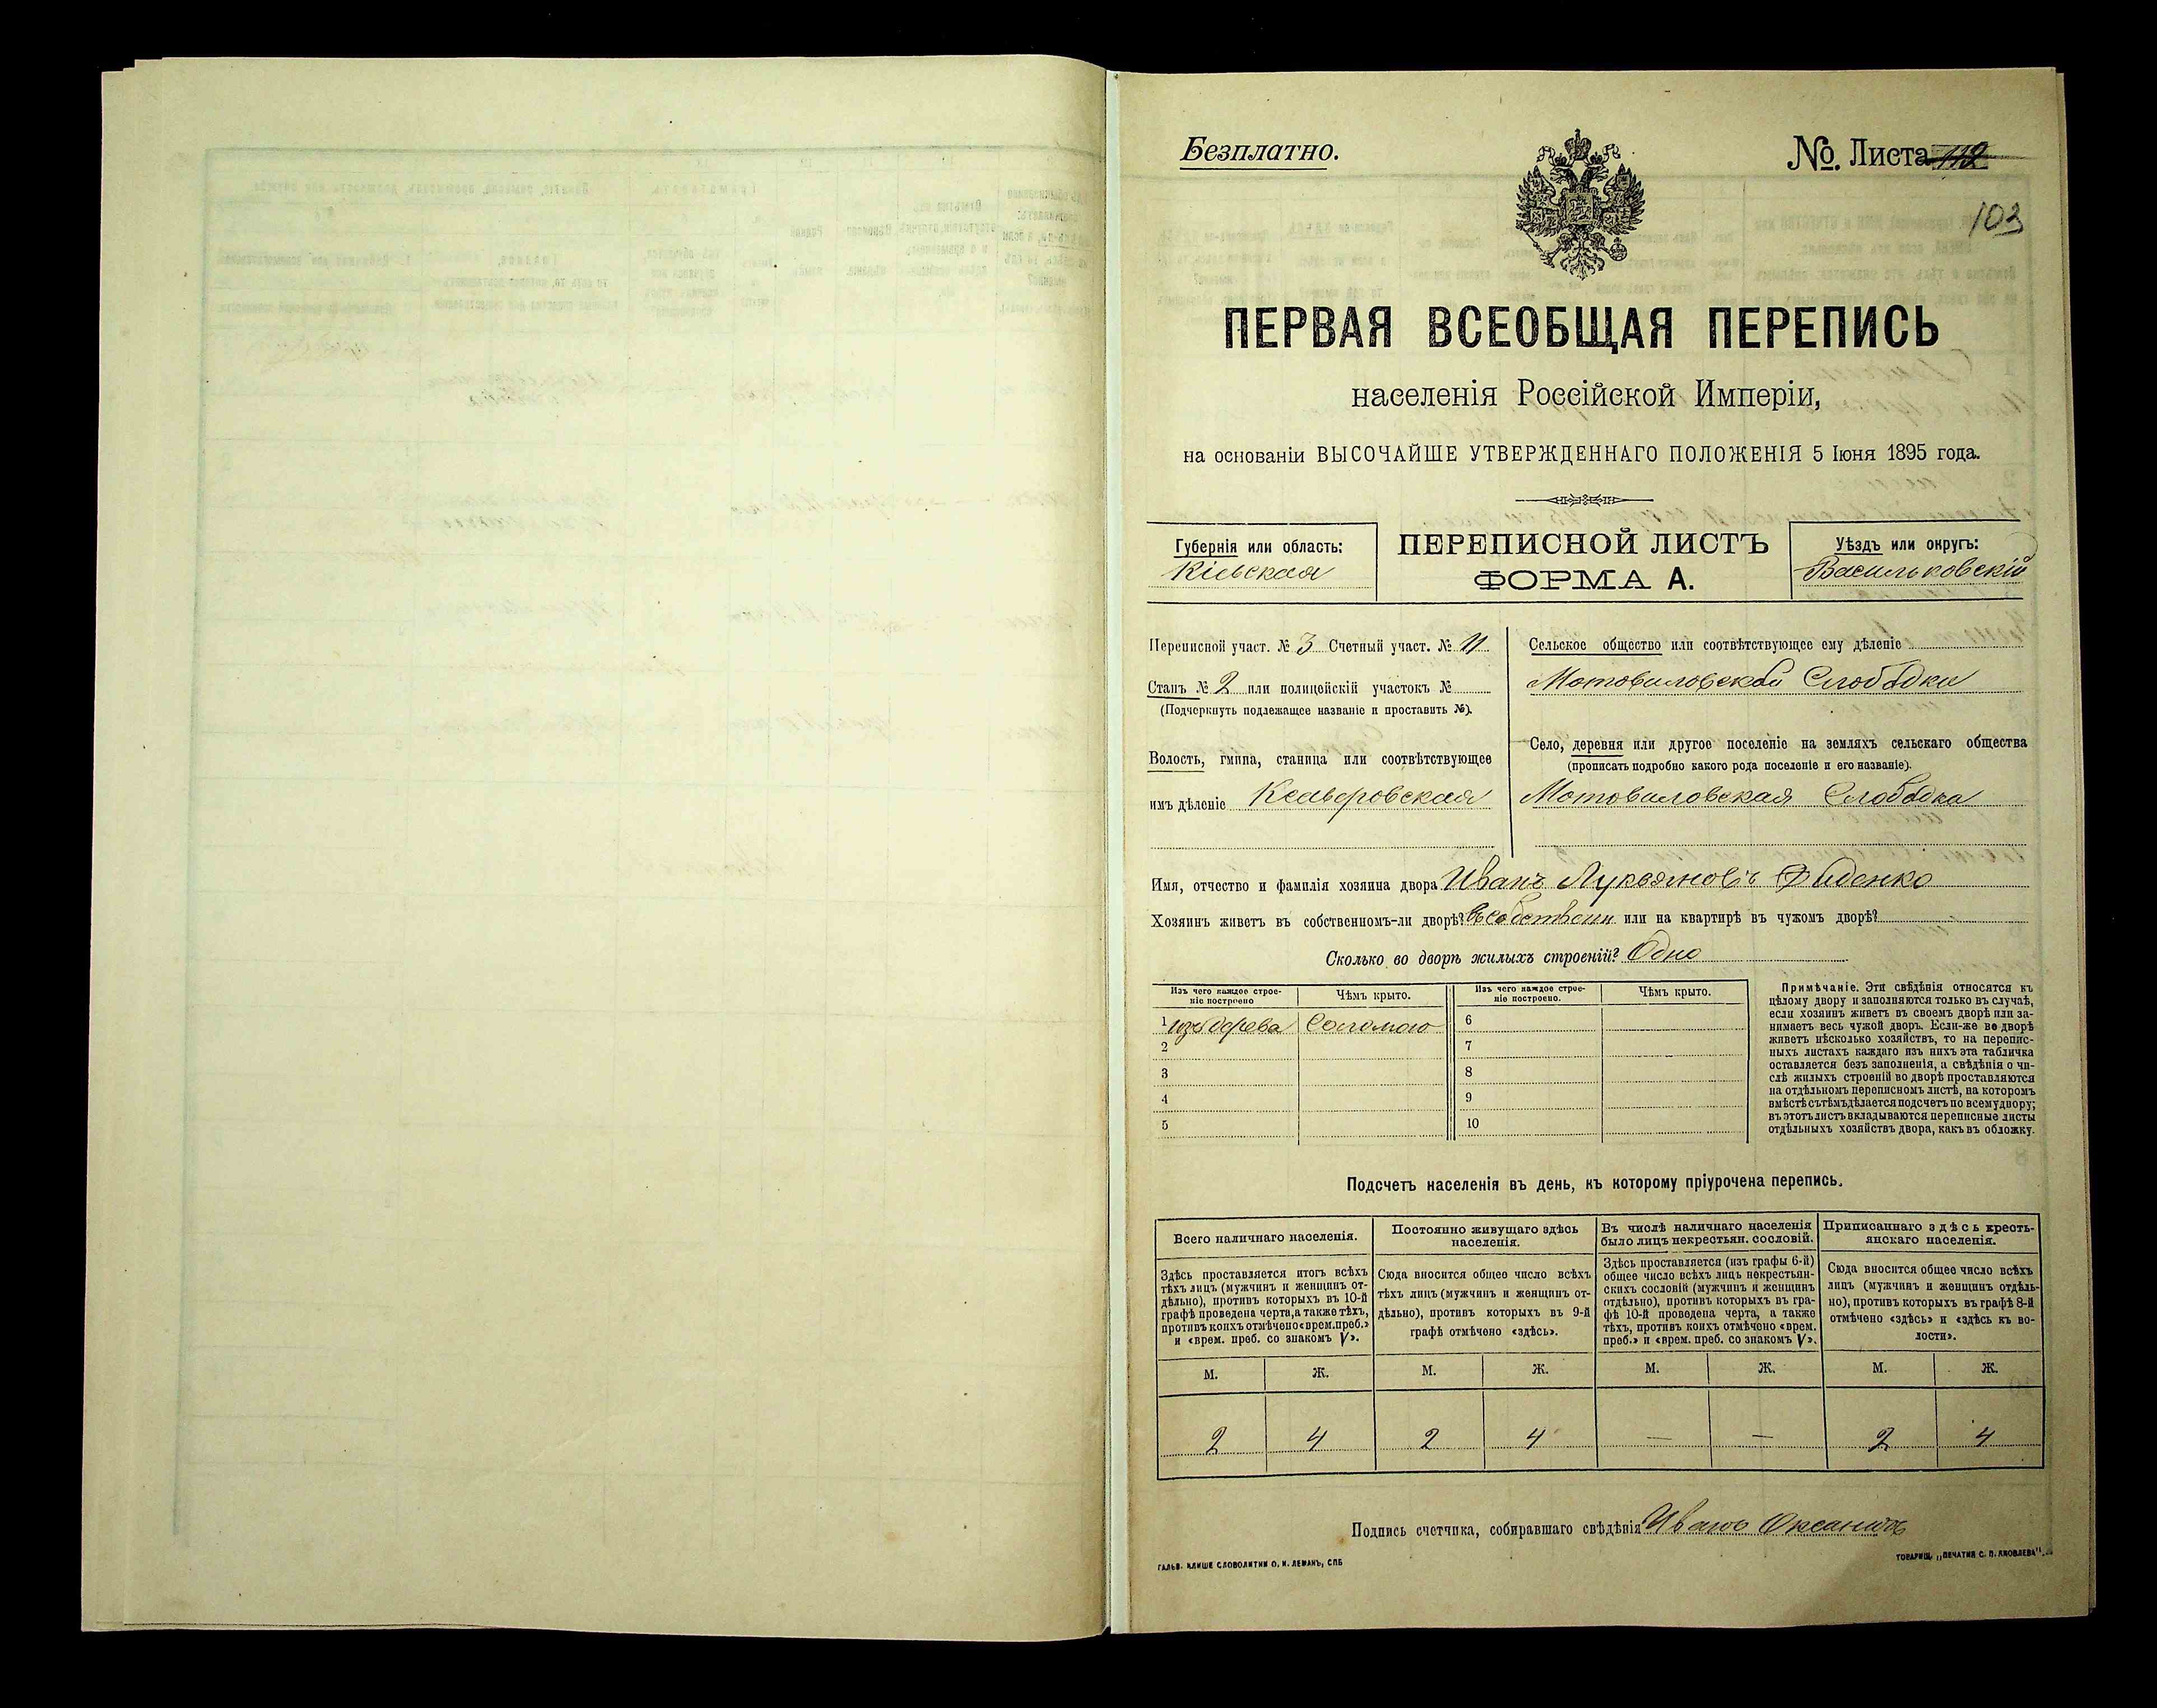 Безплатно.
№ Листа 112
103
ПЕРВАЯ ВСЕОБЩАЯ ПЕРЕПИСЬ
населенія Россійской Имперіи,
на основаніи ВЫСОЧАЙШЕ УТВЕРЖДЕННАГО ПОЛОЖЕНІЯ 5 Іюня 1895 года.
Губернія или область:
Кіевская
ПЕРЕПИСНОЙ ЛИСТЪ
ФОРМА А.
Уѣздъ или округъ:
Васильковскій
Переписной участ. № 3 Счетный участ. № 11
Станъ № 2 или полицейскій участокъ №
(Подчеркнуть подлежащее названіе и проставить №).
Волость, гмина, станица или соотвѣтствующее
имъ дѣленіе Ксаверовская
Сельское общество или соотвѣтствующее ему дѣленіе
Мотовиловской Слободки
Село, деревня или другое поселеніе на земляхъ сельскаго общества
(прописать подробно какого рода поселеніе и его названіе).
Мотовиловская Слободка
Имя, отчество и фамилія хозяина двора Иванъ Лукьяновъ Диденко
Хозяинъ живетъ въ собственномъ-ли дворѣ? Въ собствен или на квартирѣ въ чужомъ дворѣ?
Сколько во дворѣ жилыхъ строеній? Одно
Изъ чего каждое строе-
ніе построено
Чѣмъ крыто.
Изъ чего каждое строе-
ніе построено.
Чѣмъ крыто.
1 изъ дерева Соломою 6
2 7
3 8
4 9
5 10
Примѣчаніе. Эти свѣдѣнія относятся къ
цѣлому двору и заполняются только въ случаѣ,
если хозяинъ живетъ въ своемъ дворѣ или за-
нимаетъ весь чужой дворъ. Если-же во дворѣ
живетъ нѣсколько хозяйствъ, то на перепис-
ныхъ листахъ каждаго изъ нихъ эта табличка
оставляется безъ заполненія, а свѣдѣнія о чи-
слѣ жилыхъ строеній во дворѣ проставляются
на отдѣльномъ переписномъ листѣ, на которомъ
вмѣстѣ съ тѣмъ дѣлается подсчетъ по всему двору;
въ этотъ листъ вкладываются переписные листы
отдѣльныхъ хозяйствъ двора, какъ въ обложку.
Подсчетъ населенія въ день, къ которому пріурочена перепись.
Всего наличнаго населенія.
Здѣсь проставляется итогъ всѣхъ
тѣхъ лицъ (мужчинъ и женщинъ от-
дѣльно), противъ которыхъ въ 10-й
графѣ проведена черта, а также тѣхъ,
противъ коихъ отмѣчено «врем. преб.»
и «врем. преб. со знакомъ V».
Постоянно живущаго здѣсь
населенія.
Сюда вносится общее число всѣхъ
тѣхъ лицъ (мужчинъ и женщинъ от-
дѣльно), противъ которыхъ въ 9-й
графѣ отмѣчено «здѣсь».
Въ числѣ наличнаго населенія
было лицъ некрестьян. сословій.
Здѣсь проставляется (изъ графы 6-й)
общее число всѣхъ лицъ некрестьян-
скихъ сословій (мужчинъ и женщинъ
отдѣльно), противъ которыхъ въ гра-
фѣ 10-й проведена черта, а также
тѣхъ, противъ коихъ отмѣчено «врем.
преб.» и «врем. преб. со знакомъ V».
Приписаннаго здѣсь кресть-
янскаго населенія.
Сюда вносится общее число всѣхъ
лицъ (мужчинъ и женщинъ отдѣль-
но), противъ которыхъ въ графѣ 8-й
отмѣчено «здѣсь» и «здѣсь къ во-
лости».
М. Ж. М. Ж. М. Ж. М. Ж.
2 4 2 4 — — 2 4
Подпись счетчика, собиравшаго свѣдѣнія Иванъ Оксаничъ
ГАЛЬВ. КЛИШЕ СЛОВОЛИТНИ О. И. ЛЕМАНЪ, СПБ
ТОВАРИЩ. „ПЕЧАТНЯ С. П. ЯКОВЛЕВА".